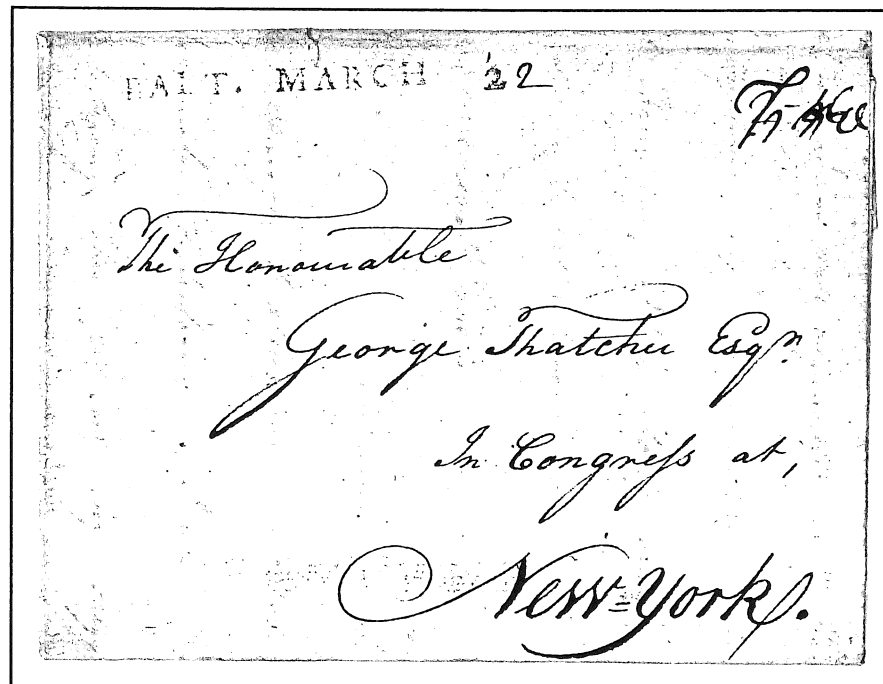 BALT. MARCH 22
Free
The Honourable
George Thatcher Esqr.
In Congreſs at,
New=York.